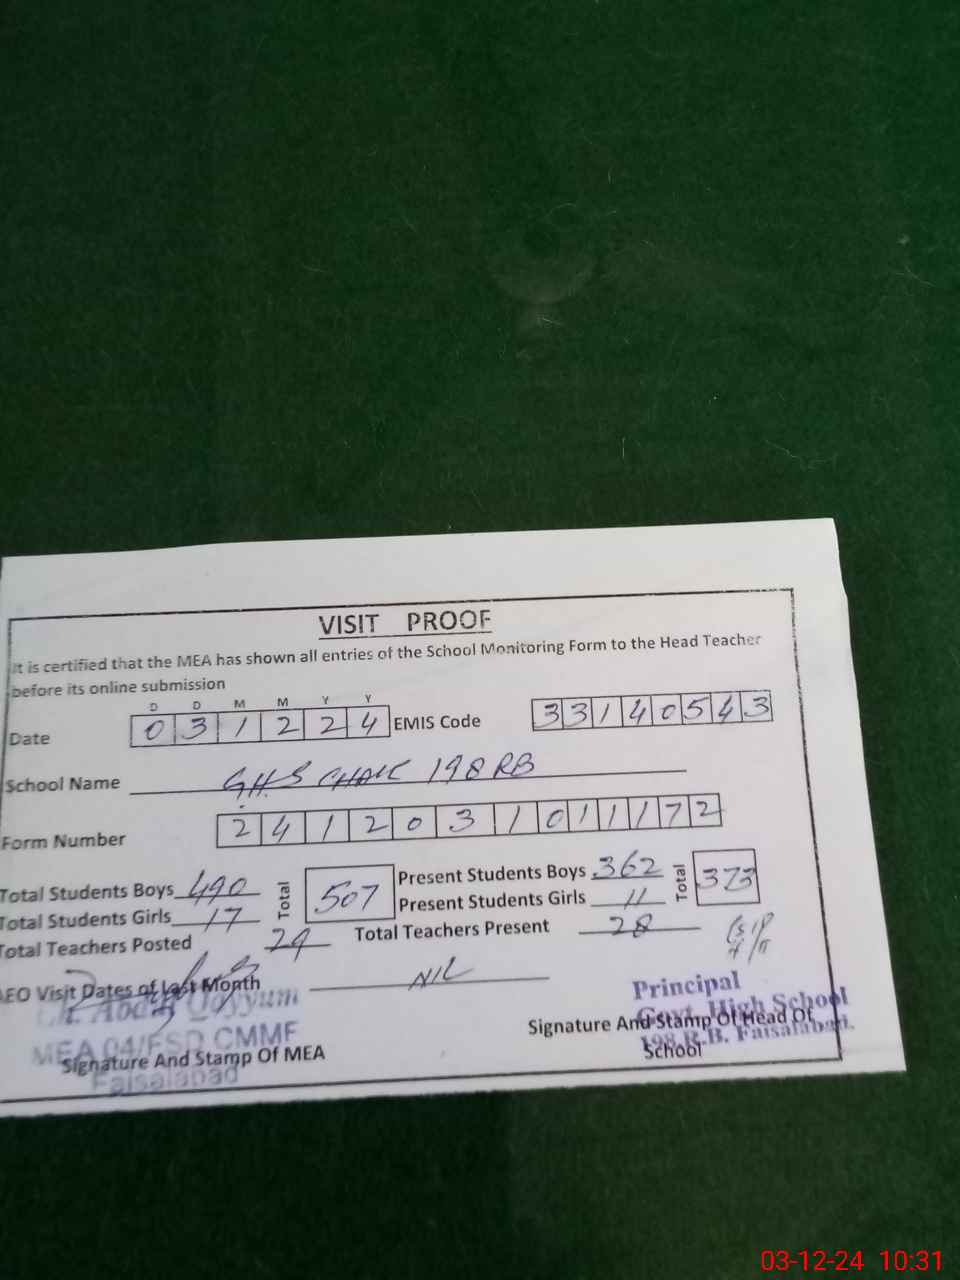 VISIT PROOF
It is certified that the MEA has shown all entries of the School Monitoring Form to the Head Teacher
before its online submission
D D M M Y Y
Date 0 3 1 2 2 4 EMIS Code 3 3 1 4 0 5 4 3
School Name GHS CHAK 198 RB
Form Number 2 4 1 2 0 3 1 0 1 1 1 7 2
Total Students Boys 490 Total 507 Present Students Boys 362 Total 373
Total Students Girls 17 Present Students Girls 11
Total Teachers Posted 29 Total Teachers Present 28
AEO Visit Dates of Last Month NIL
Ch. Abdul Qayyum
MEA 04/FSD CMMF
Faisalabad
Signature And Stamp Of MEA
Principal
Govt. High School
198 R.B. Faisalabad.
Signature And Stamp Of Head Of
School
03-12-24 10:31